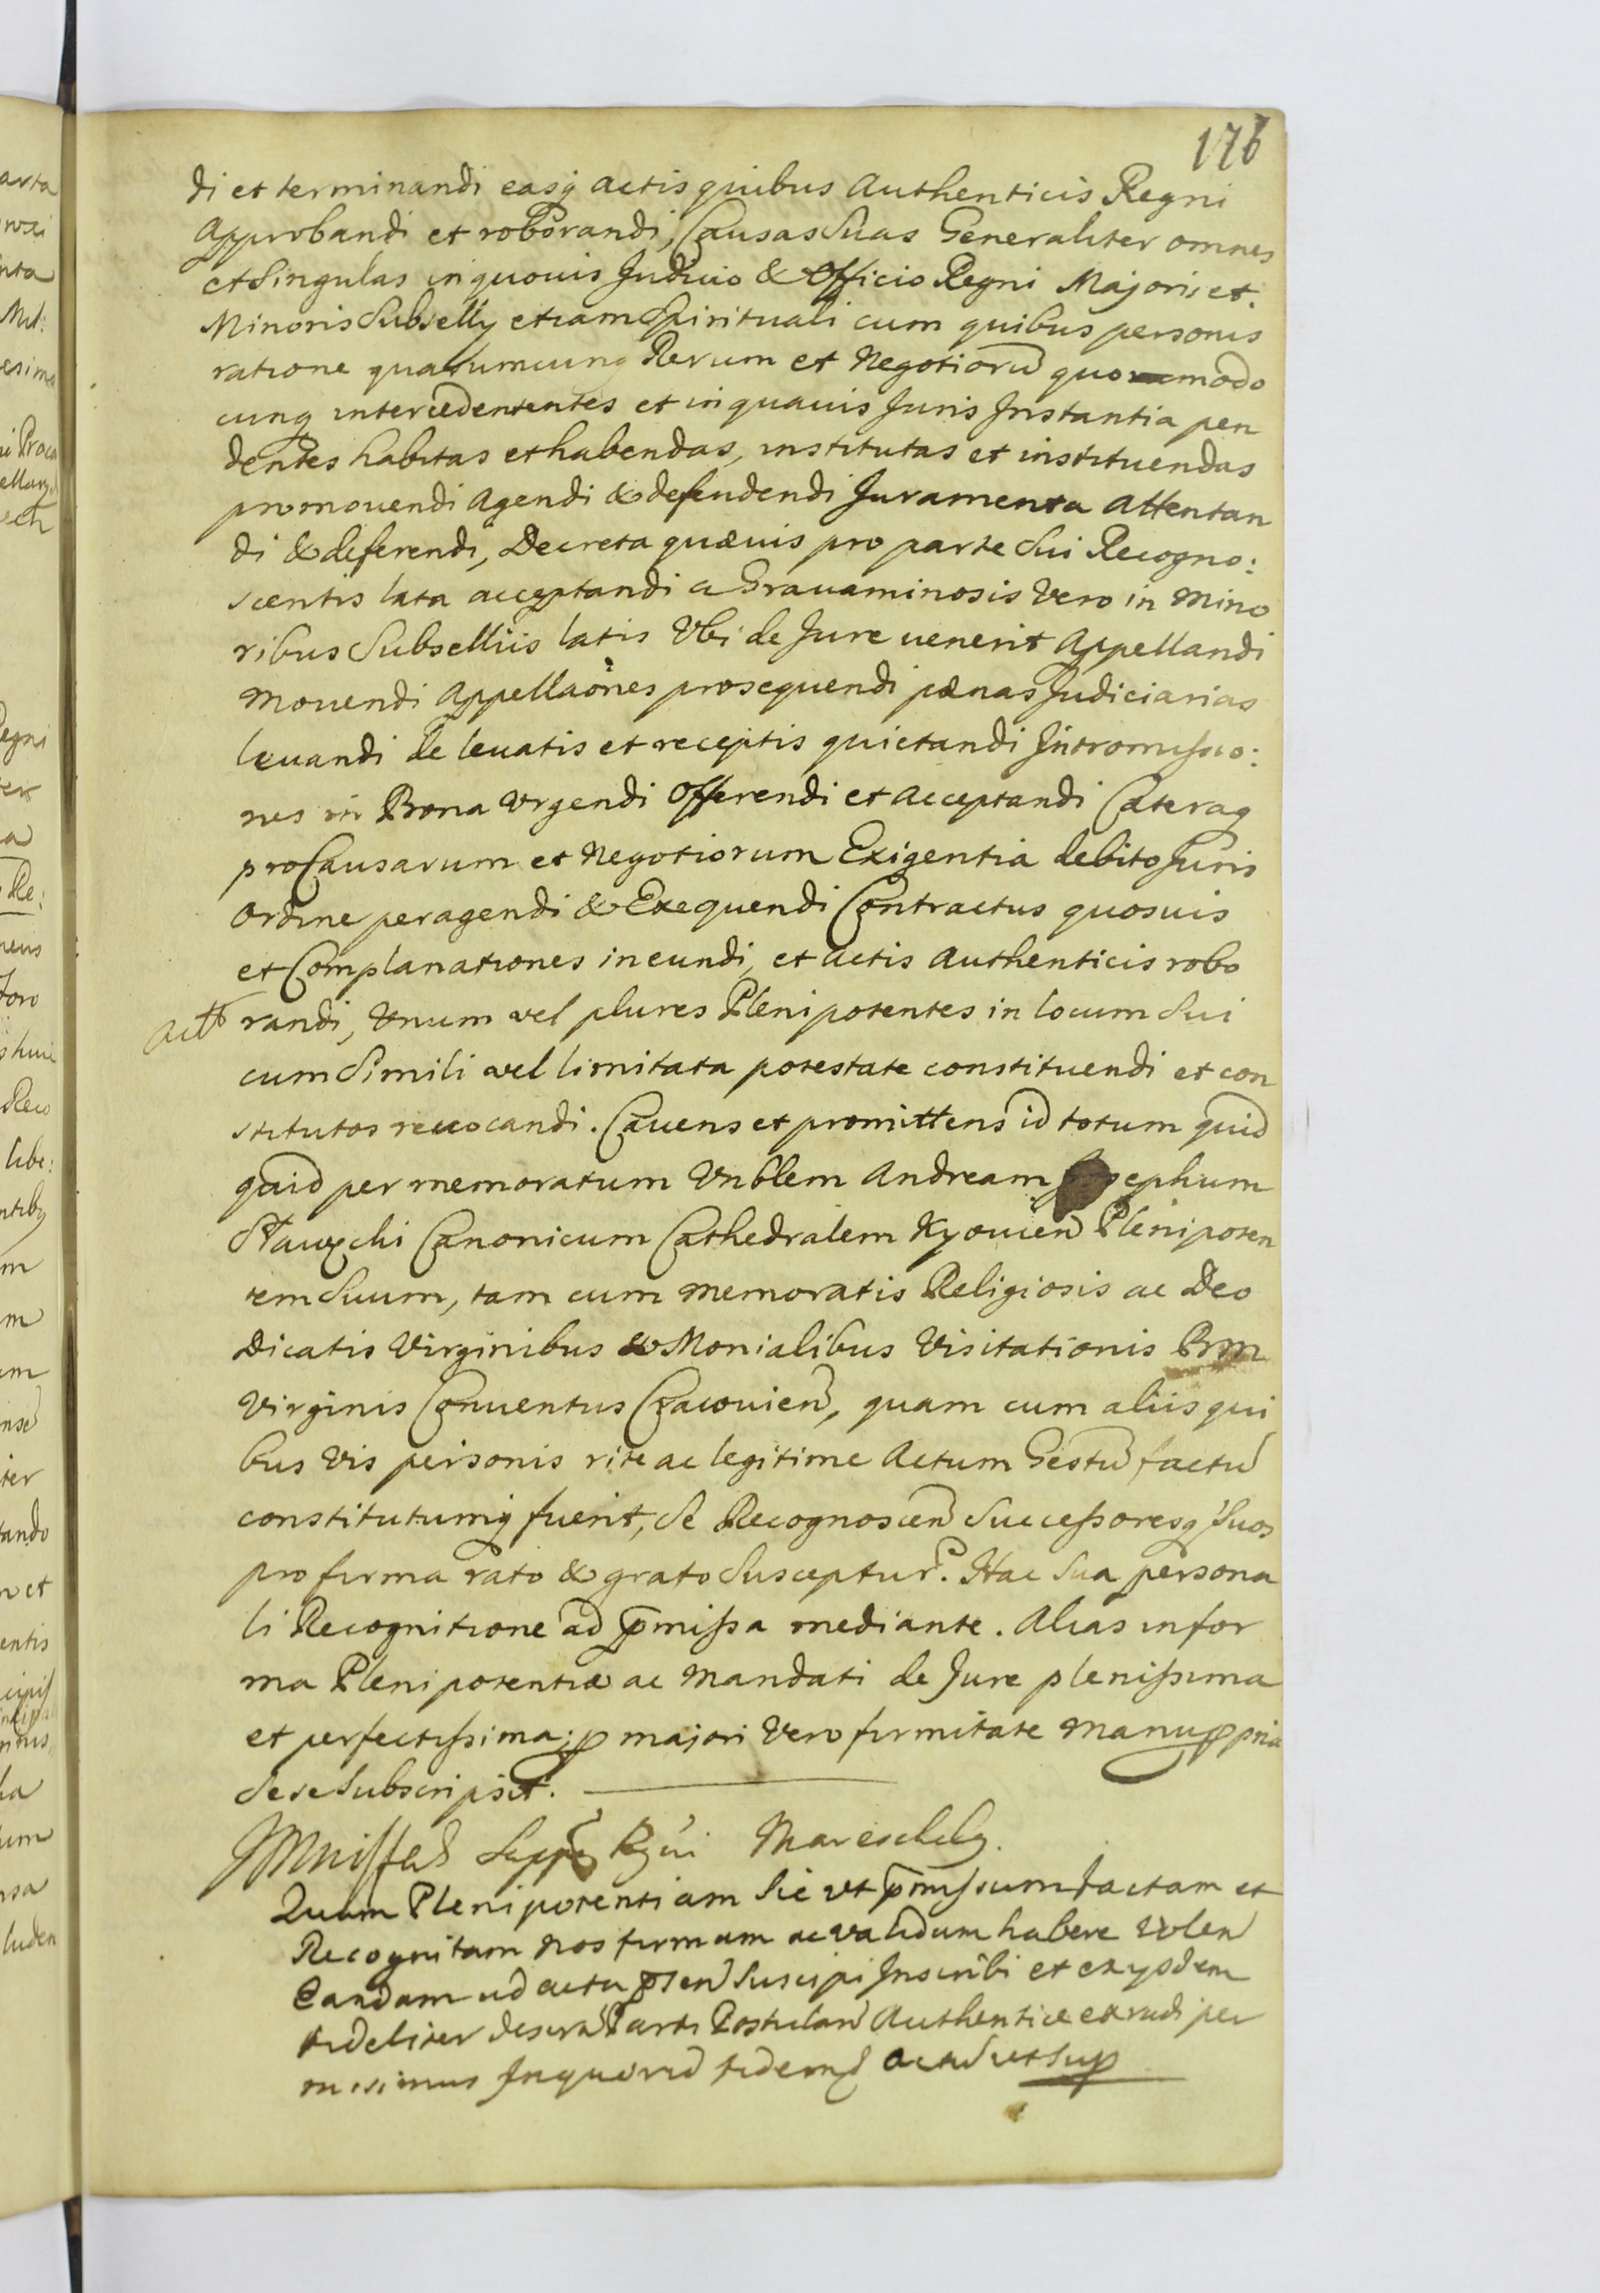 176
di et terminandi easq actis quibus Authenticis Regni
Approbandi et roborandi, Causas suas Generaliter omnes
et Singulas in quouis Judicio & Officio Regni Majoris et
Minoris Subselly etiam Spirituali cum quibus personis
ratione quarumcunq Rerum et Negotiorũ quomodo
cunq intercedententes et in quauis Juris Instantia pen
dentes habitas et habendas, institutas et instituendas
promouendi Agendi & defendendi Juramenta Attentan
di & deferendi, Decreta quæuis pro parte Sui Recogno:
scentis lata acceptandi a Grauaminosis Vero in Mino
ribus Subselliis latis Vbi de Jure uenerit Appellandi
Mouendi Appellaões prosequendi pænas Judiciarias
leuandi de leuatis et receptis quietandi Intromissio:
nes in Bona Vrgendi Offerendi et Acceptandi Cæteraq
pro Causarum et Negotiorum Exigentia debito Juris
Ordine peragendi & Exequendi Contractus quosuis
et Complanationes ineundi, et Actis Authenticis robo
randi, Vnum vel plures Plenipotentes in locum Sui
cum Simili vel limitata potestate constituendi et con
stitutos reuocandi. Cauens et promittens id totum quid
quid per memoratum Vnblem Andream Josephum
Canonicum Cathedralem Kyouien Plenipoten
tem Suum, tam cum memoratis Religiosis ac Deo
Dicatis Virginibus & Monialibus Visitationis Brm
Virginis Conuentus Cracouien, quam cum aliis qui
bus Vis personis rite ac legitime Actum Gestũ factũ
constitutumq fuerit, Se Recognoscen Successoresq Suos
pro firma rato & grato Suscepturũ. Hac Sua persona
li Recognitione ad pmissa mediante. Alias in for
ma Plenipotentiæ ac Mandati de Jure plenissima
et perfectissima; p majori Vero firmitate Manu ppria
Sese Subscripsit.
Regni Mareschalcq.
Quam Plenipotentiam Sic vt pmissum factam et
Recognitam Nos firmam ac validam habere Volen
Eandam ad acta pñsen Suscipi Inscribi et exysdem
fideliter descrã Parti Postulan Authentice extradi per
misimus In quorũ fidem Actũ ut Sup